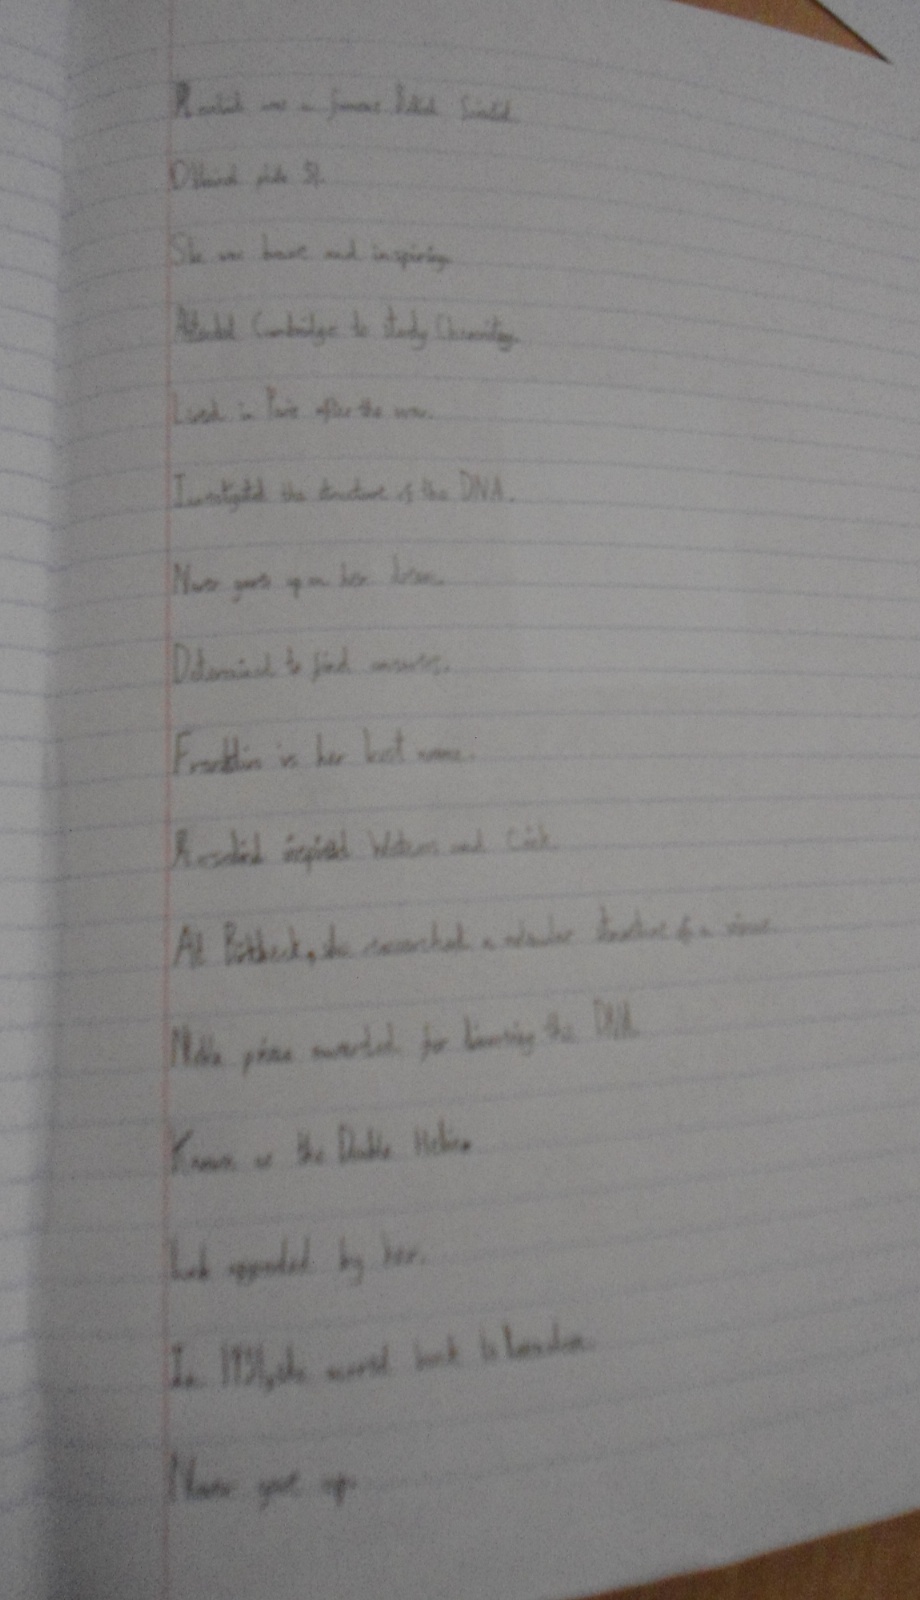 Rosalind was a famous British Scientist
Obtained photo 51.
She was brave and inspiring.
Attended Cambridge to study Chemistry.
Lived in Paris after the war.
Investigated the structure of the DNA.
Never gave up on her dream.
Determined to find answers.
Franklin is her last name.
Rosalind inspired Watson and Crick.
At Birkbeck, she researched a molecular structure of a virus.
awarded for the DNA
Known as the Double Helix
by her.
In she moved back to London.
Never gave up.